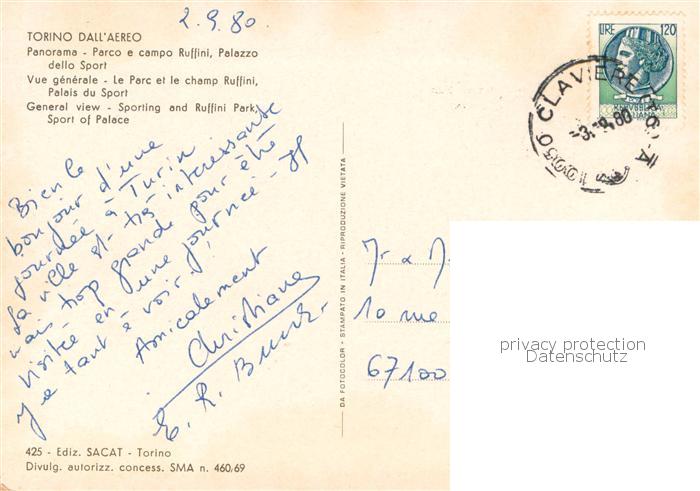 2.9.80
TORINO DALL'AEREO
Panorama - Parco e campo Ruffini, Palazzo
dello Sport
Vue générale - Le Parc et le champ Ruffini,
Palais du Sport
General view - Sporting and Ruffini Park,
Sport of Palace
Bien le
bonjour d'une
journée à Turin
La ville est très intéressante
mais trop grande pour être
visitée en une journée -
y a tant à voir.
Amicalement
Christiane
E. R.
425 - Ediz. SACAT - Torino
Divulg. autorizz. concess. SMA n. 460/69
DA FOTOCOLOR - STAMPATO IN ITALIA - RIPRODUZIONE VIETATA -
LIRE 120
10050 CLAVIERE
-3.-9.80
Mr & M
10 rue
67100
privacy protection
Datenschutz